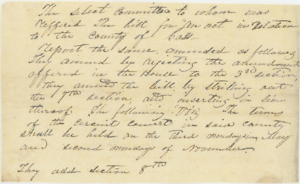 The select committee to whom was
reffered the bill for An act in relation
to the County of Cass.
Report the same, amended as follows
They amend by rejecting the amendment
offered in the House to the 3rd section
they amend the bill, by striking out
the 7th section, and inserting in lieu
thereof. The following, Viz, The terms
of the Circuit Court in said county
shall be held on the third monday in May
and second monday of November
They add section 8th